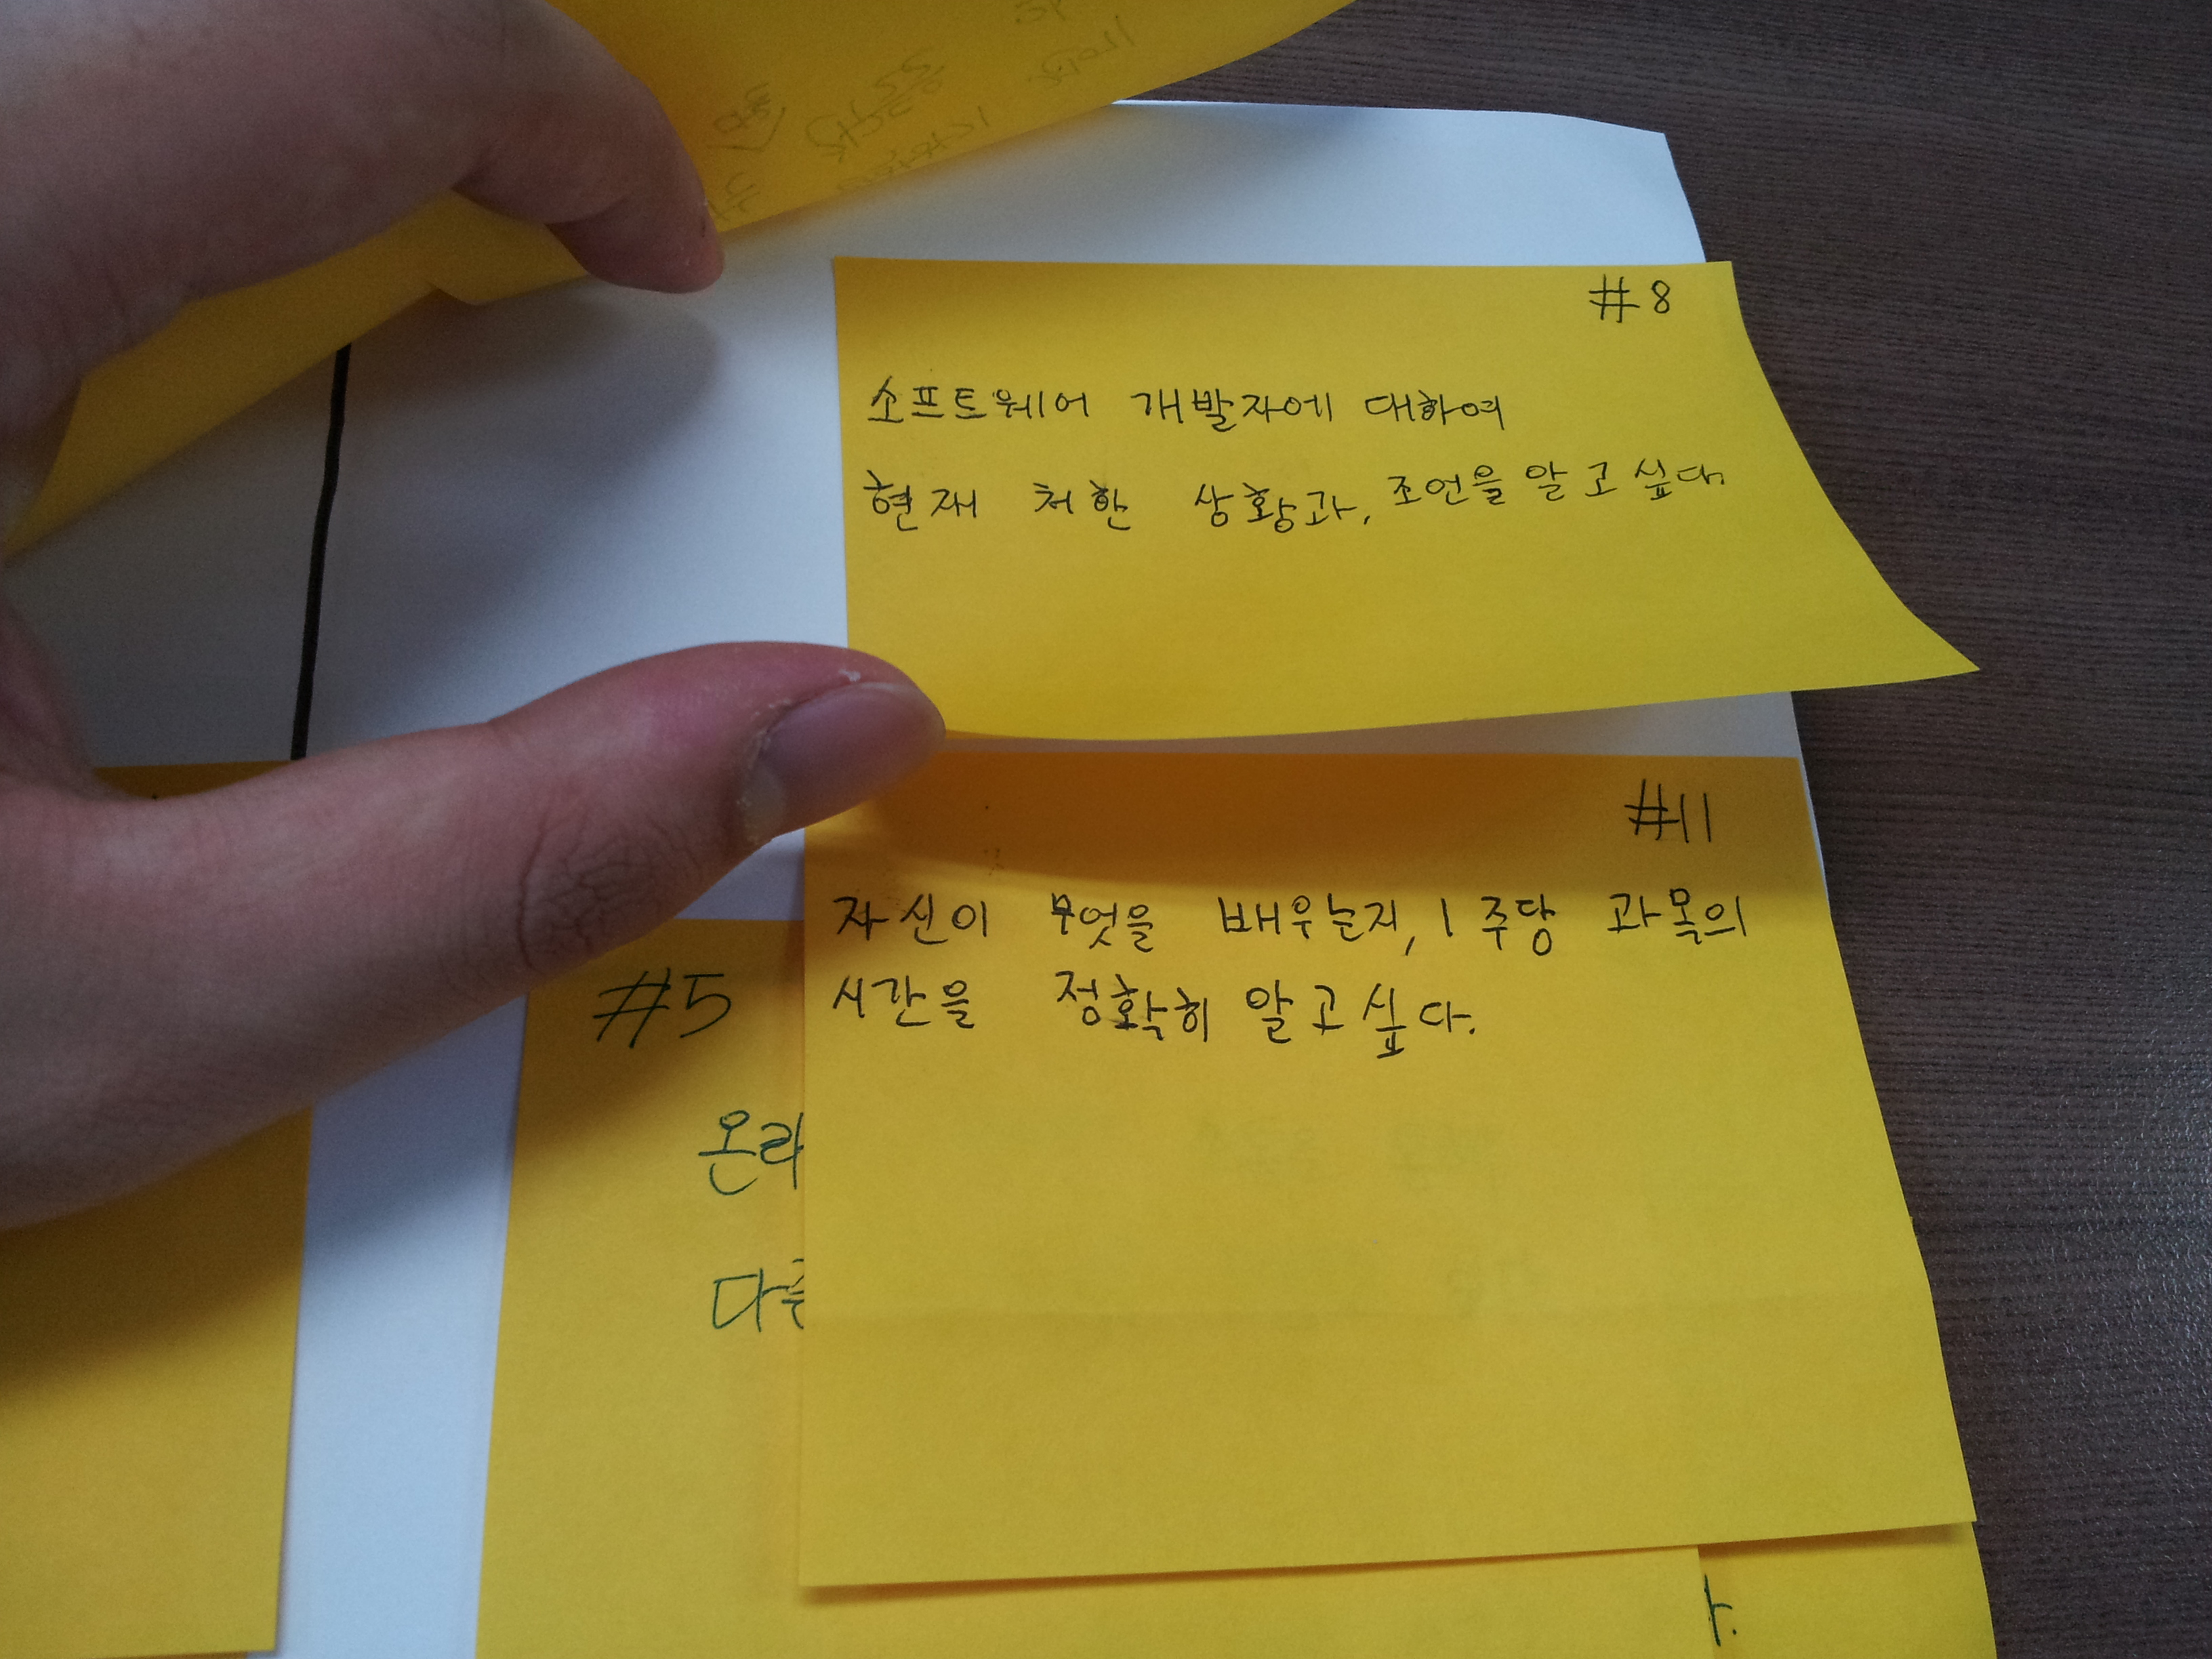 #8
소프트웨어 개발자에 대하여
현재 처한 상황과, 조언을 알고싶다.
#11
자신이 무엇을 배우는지, 1주당 과목의
시간을 정확히 알고싶다.
#5